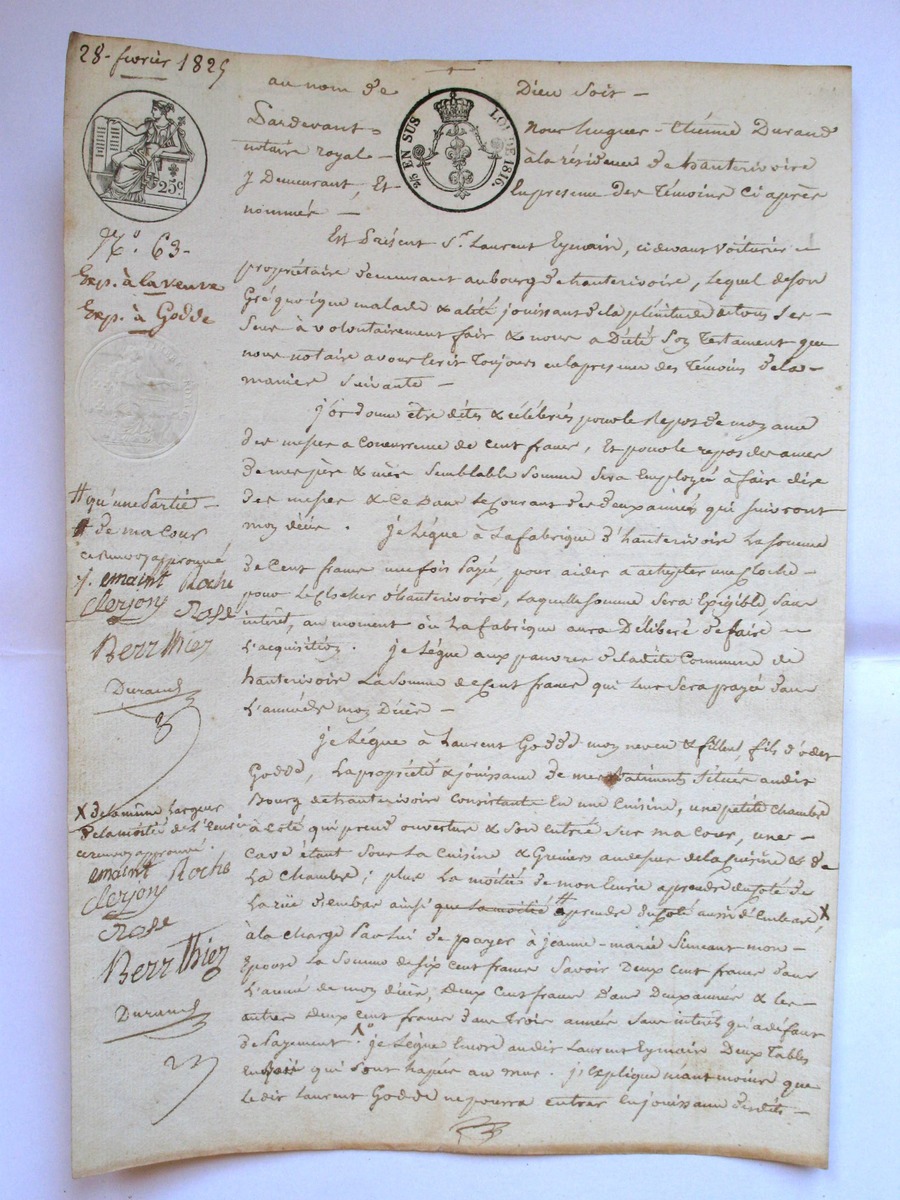 28. fevrier 1825
au nom de Dieu soit
Pardevant Nous hugues-thieme Durand
notaire royal à la résidence de hauterivoire
y Demeurant, Et En presence Des Témoins Ci après
nommés
25c
2/5 EN SUS LOI DE 1816.
N.o 63
Exp. à la veuve
Exp. à Godde
Est Présent S.r Laurent Eymain, ci devant Voiturier
propriétaire demeurant au bourg de hauterivoire, lequel de son
Gré quoique malade & alité jouissant de la plénitude de tous ses
Sens à volontairement fait & nous a Dicté Son Testament que
nous notaire avons Ecrit Toujours en la presence des Témoins de la
manière Suivante
j'ordonne être dites & célébrées pour le Repos de mon ame
des messes a Concurrence de Cent francs, Et pour le repos des ames
de mes père & mère Semblable Somme Sera Employée à faire dire
des messes & Ce Dans le Courant des deux années qui Suivront
mon décès. je Lègue à La fabrique d'hauterivoire La Somme
de Cent francs une fois Payée, pour aider a achepter une Cloche
pour Le Clocher d'hauterivoire, Laquelle Somme Sera Exigible, Sans
intérêt, au moment où La fabrique aura Délibéré de faire
L'acquisition. je Lègue aux pauvres de ladite Commune de
hauterivoire La Somme de Cent francs qui Leur Sera payée dans
L'année de mon Décès
je Lègue à Laurent Godde mon neveu & filleul, fils d'
Godde, La propriété & jouissance de mes Batiments Situés au dit
Bourg de hauterivoire Consistants En une Cuisine, une petite Chambre
à Coté qui prend ouverture & Son Entrée Sur ma Cour, une
Cave étant Sous La Cuisine & Greniers au dessus de la Cuisine & de
La Chambre; plus La moitié de mon Ecurie a prendre du Coté de
La rüe d'embas ainsi que la moitié # a prendre du Coté aussi d'Embas, X
à la Charge Par Lui de payer à jeanne-marie Simeant mon
Epouse La Somme de Six Cent francs Savoir Deux Cent francs dans
L'année de mon décès, deux Cent francs dans Deux années & les
autres Deux Cent francs dans Trois années Sans intérêt qu'à défaut
de Payement. je Lègue Encore au dit Laurent Eymain Deux Tables
qui Sont au mur. j'Explique néantmoins que
Le dit Laurent Godde ne pourra entrer En jouissance desdits
# qu'une Partie
# de ma Cour
ce renvoy approuvé
j. emaint Roche
Clerjon Rose
Berrthier
Durand
X de la même Largeur
de la moitié de L'Ecurie
ce renvoy approuvé.
emaint Roche
Clerjon
Rose
Berrthier
Durand